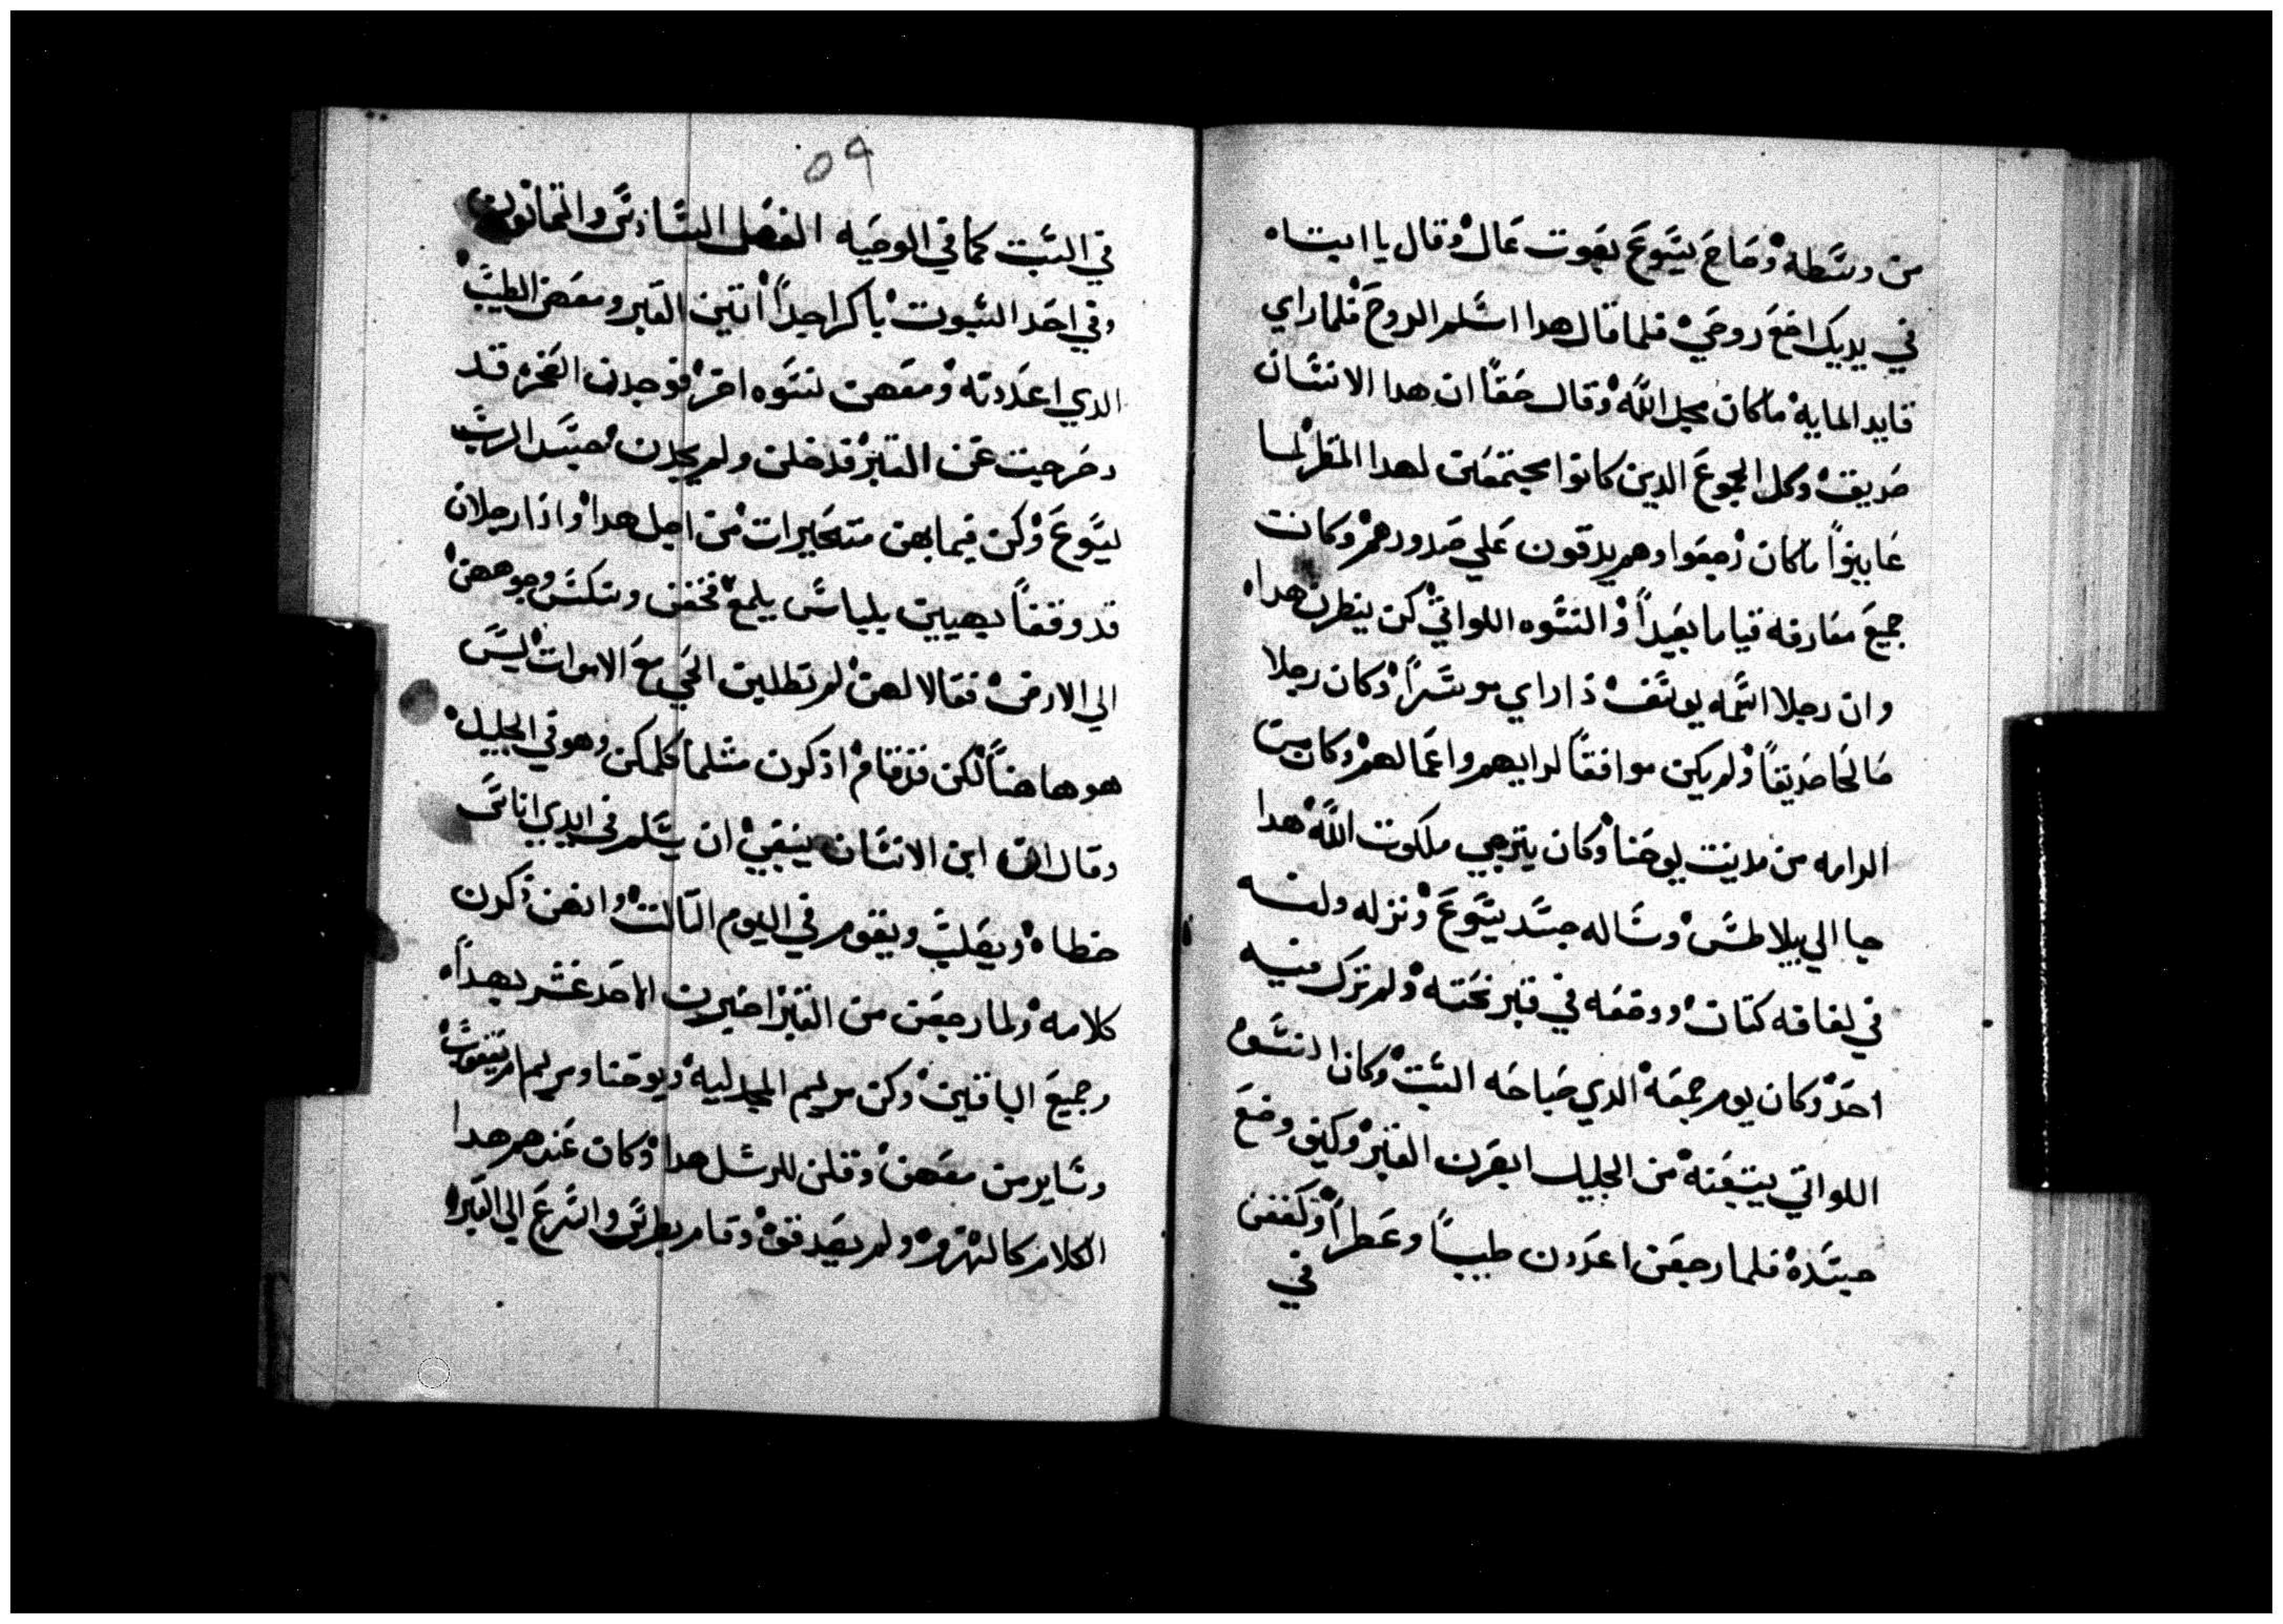 من وسطه وصاح يسوع بصوت عال وقال يا ابتاه
في يديك اضع روحي فلما قال هدا اسلم الروح فلما راي
قايد المايه ماكان مجد الله وقال حقاً ان هدا الانسان
صديق وكل الجموع الدين كانوا مجتمعين لهدا المنظر لما
عاينوا ماكان رجعوا وهم يدقون علي صدورهم وكانت
جميع معارفه قياما بعيداً والنسوه اللواتي كن ينظرن هداه
وان رجلا اسمه يوسف ذا راي موسراً وكان رجلا
صالحا صديقاً ولم يكن موافقاً لرايهم واعمالهم وكان من
الرامه من مدينت يوحنا وكان يترجي ملكوت الله هدا
جا الي بيلاطس وساله جسد يسوع ونزله ولفه
في لفافه كتان ووضعه في قبر نحته ولم ترك فيه
احد وكان يوم جمعه الدي صباحه السبت وكان النسوه
اللواتي يتبعنه من الجليل ابصرن القبر وكيف وضع
جسده فلما رجعن اعددن طيباً وعطراً وكففن
في
٥٩
في السبت كما في الوصيه الفصل السادس والثمانون
وفي احد السبوت باكرا جداً اتين القبر ومعهن الطيب
الدي اعددنه ومعهن نسوه اخر فوجدن الصخره قد
دحرجت عن القبر فدخلن ولم يجدن جسد الرب
يسوع وكن فيما بهن متحيرات من اجل هدا واذا رجلان
قد وقفا بهيين بلباس يلمع فخفن ونكسن وجوههن
الي الارض فقالا لهن لم تطلبن الحي مع الاموات ليس
هو هاهنا لكن قد قام اذكرن مثلما كلمكن وهو في الجليل
وقال ان ابن الانسان ينبغي ان يسلم في ايدي اناس
خطاه ويصلب ويقوم في اليوم الثالث وانهن ذكرن
كلامه ولما رجعن من القبر اخبرن الاحد عشر بهداه
وجميع الباقين وكن مريم المجدليه ويوحنا ومريم ام يعقوب
وساير من معهن وقلن للرسل هدا وكان عندهم هدا
الكلام كالهزو ولم يصدقن وقام بطرس واسرع الي القبر